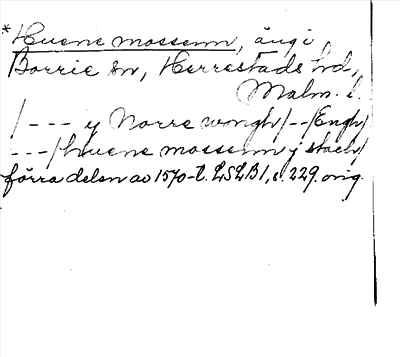 *Huene mossenn, äng i
Borrie sn, Herrestads hd,
Malm. l.
/--- y Norre wongh/--/Engh/
---/huene mossenn j stach/
förra delen av 1570-t. LSLB1, s. 229. orig.